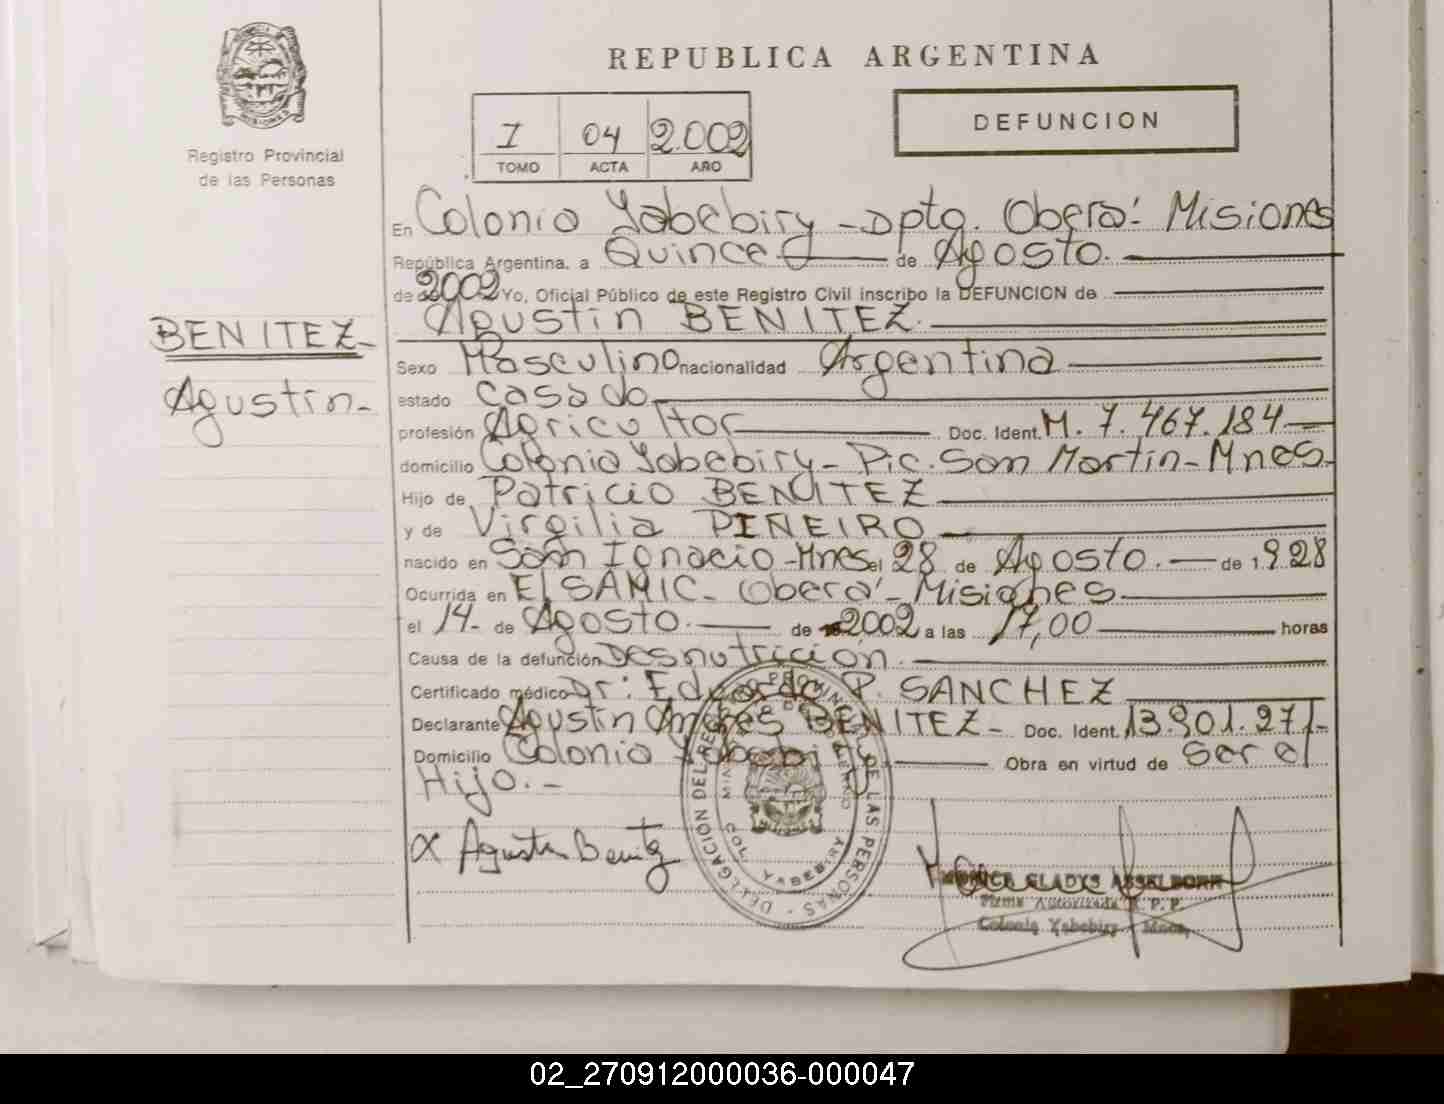 REPUBLICA ARGENTINA
Registro Provincial
de las Personas
I 04 2.002
TOMO ACTA AÑO
DEFUNCION
En Colonia Yabebiry - Dpto. Oberá: Misiones
República Argentina, a Quince de Agosto.
de 2002 Yo, Oficial Público de este Registro Civil inscribo la DEFUNCION de
Agustin BENITEZ.
BENITEZ-
Agustin-
Sexo Masculino nacionalidad Argentina
estado casado
profesión Agricultor Doc. Ident. M. 7.467.184
domicilio Colonia Yabebiry - Pic. San Martin - Mnes.
Hijo de Patricio BENITEZ
y de Virgilia PIÑEIRO
nacido en San Ignacio - Mnes el 28 de Agosto. de 1.928
Ocurrida en El SAMIC - Oberá - Misiones
el 14- de Agosto. de 2002 a las 17,00 horas
Causa de la defunción Desnutricion.
Certificado médico Dr: Eduardo P. SANCHEZ
Declarante Agustin Andres BENITEZ - Doc. Ident. 13.901.271-
Domicilio Colonia Yabebiry Obra en virtud de ser el
Hijo.-
x Agustin Benitez
DELEGACION DEL REGISTRO PROVINCIAL DE LAS PERSONAS
COL. YABEBIRY
GLADYS ASSELBORN
Firma Autorizada R. P. P.
Colonia Yabebiry - Mnes.
02_270912000036-000047